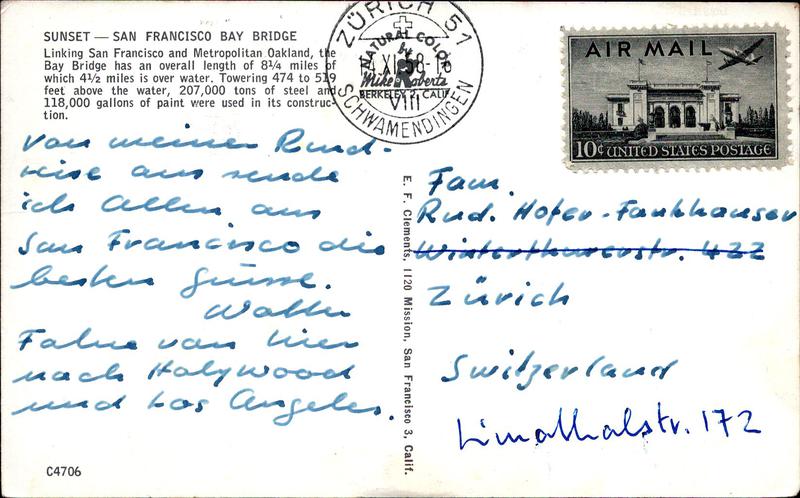 SUNSET — SAN FRANCISCO BAY BRIDGE
Linking San Francisco and Metropolitan Oakland, the
Bay Bridge has an overall length of 8¼ miles of
which 4½ miles is over water. Towering 474 to 519
feet above the water, 207,000 tons of steel and
118,000 gallons of paint were used in its construc-
tion.
Von meiner Rund-
reise aus sende
ich Allen aus
San Francisco die
besten Grüsse.
Walter
Fahre von hier
nach Holywood
und Los Angeles.
C4706
E. F. Clements, 1120 Mission, San Francisco 3, Calif.
ZÜRICH 51
SCHWAMENDINGEN
VIII
NATURAL COLOR
by
Mike Roberts
BERKELEY 2, CALIF.
AIR MAIL
10¢ UNITED STATES POSTAGE
Fam.
Rud. Hofer-Fankhauser
Winterthurerstr. 422
Zürich
Switzerland
Limathalstr. 172